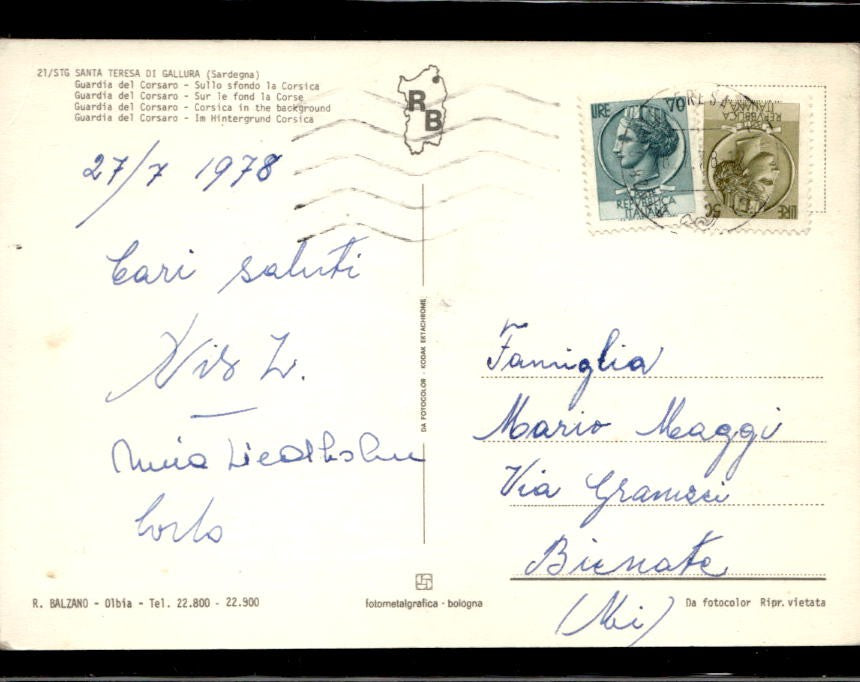 21/STG SANTA TERESA DI GALLURA (Sardegna)
Guardia del Corsaro - Sullo sfondo la Corsica
Guardia del Corsaro - Sur le fond la Corse
Guardia del Corsaro - Corsica in the background
Guardia del Corsaro - Im Hintergrund Corsica
RB
LIRE 70
REPVBBLICA
ITALIANA
LIRE 50
REPVBBLICA
ITALIANA
27/7 1978
Cari saluti
Nils L.
Liedholm
Carlo
DA FOTOCOLOR - KODAK EKTACHROME
Famiglia
Mario Maggi
Via Gramsci
Bienate
(Mi)
R. BALZANO - Olbia - Tel. 22.800 - 22.900
fotometalgrafica - bologna
Da fotocolor Ripr. vietata